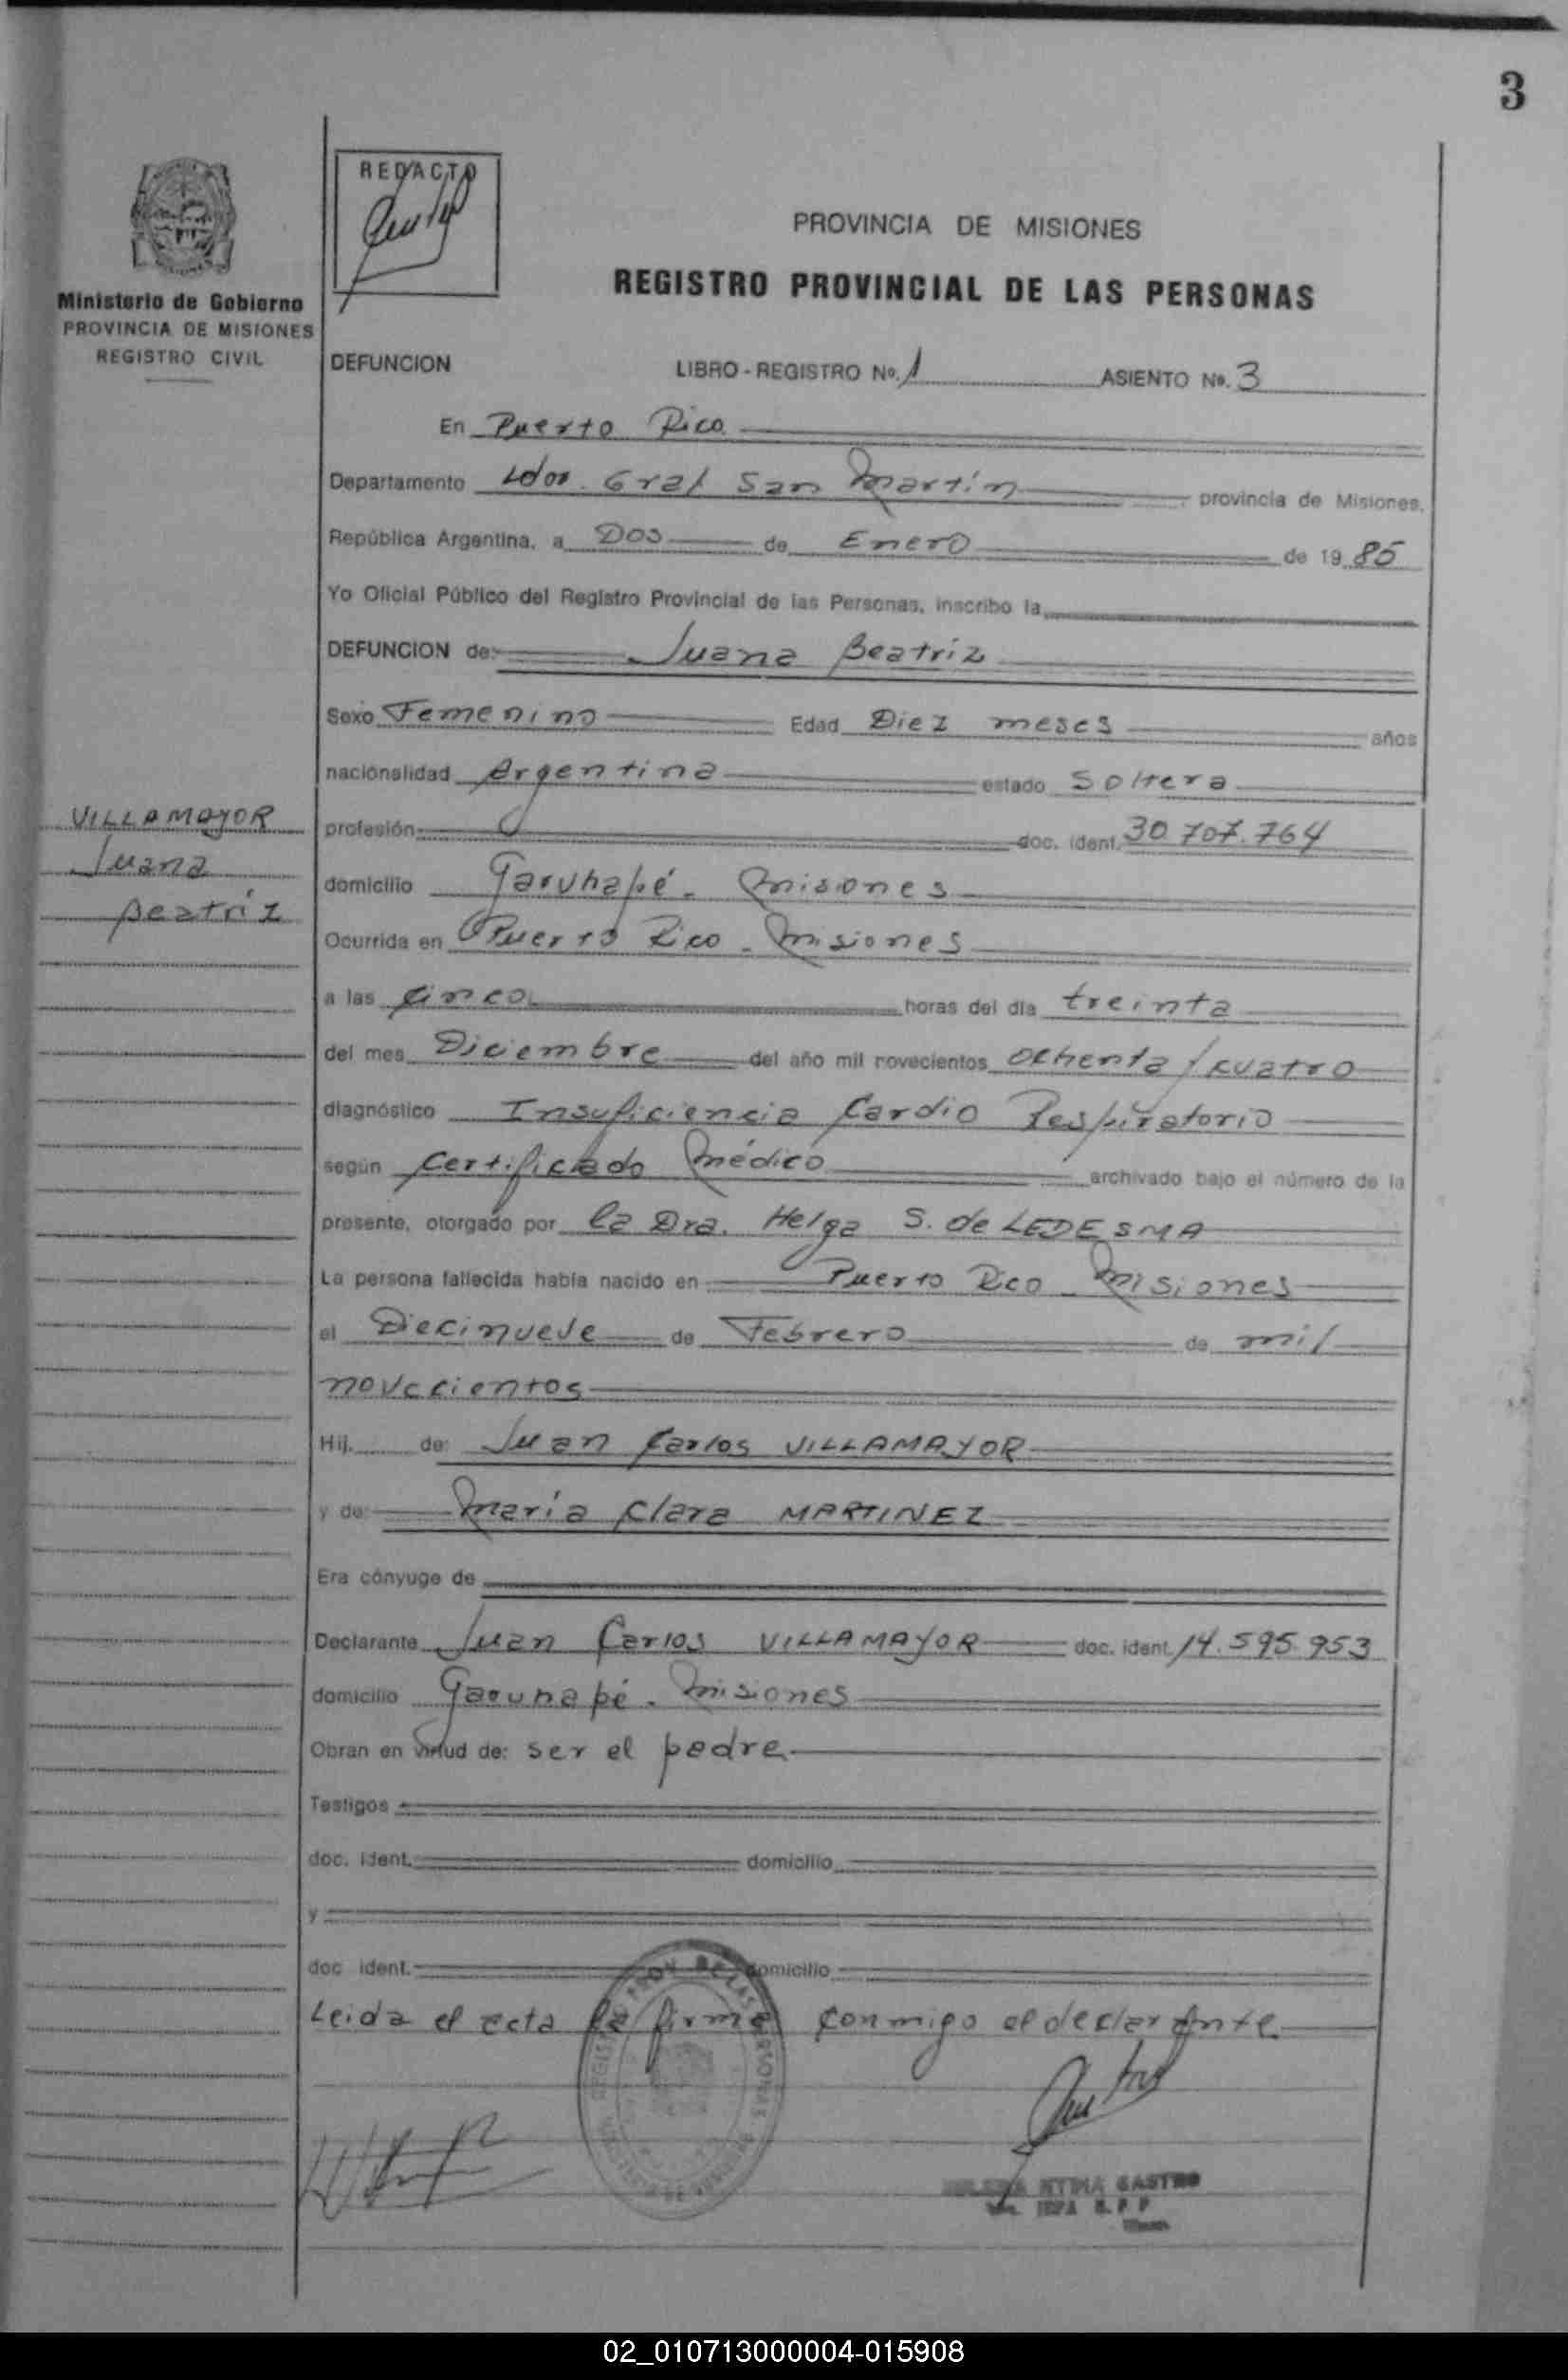 3
REDACTO
PROVINCIA DE MISIONES
REGISTRO PROVINCIAL DE LAS PERSONAS
Ministerio de Gobierno
PROVINCIA DE MISIONES
REGISTRO CIVIL
DEFUNCION LIBRO - REGISTRO No. 1 ASIENTO No. 3
En Puerto Rico
Departamento Ldor. Gral San Martín provincia de Misiones,
República Argentina, a Dos de Enero de 19 85
Yo Oficial Público del Registro Provincial de las Personas, inscribo la
DEFUNCION de: Juana Beatríz
Sexo Femenino Edad Diez meses años
nacionalidad Argentina estado Soltera
VILLAMAYOR
Juana
Beatríz
profesión doc. ident. 30.707.764
domicilio Garuhapé - Misiones
Ocurrida en Puerto Rico - Misiones
a las cinco horas del día treinta
del mes Diciembre del año mil rovecientos ochenta/cuatro
diagnóstico Insuficiencia Cardio Respiratorio
según Certificado Médico archivado bajo el número de la
presente, otorgado por la Dra. Helga S. de LEDESMA
La persona fallecida había nacido en Puerto Rico - Misiones
el Diecinueve de Febrero de mil
novecientos
Hij. de: Juan Carlos VILLAMAYOR
y de: María Clara MARTINEZ
Era cónyuge de
Declarante Juan Carlos VILLAMAYOR doc. ident. 14.595.953
domicilio Garuhapé - Misiones
Obran en virtud de: ser el padre
Testigos
doc. ident. domicilio
y
doc ident. domicilio
Leida el acta la firma conmigo el declarante
CASTRO
02_010713000004-015908